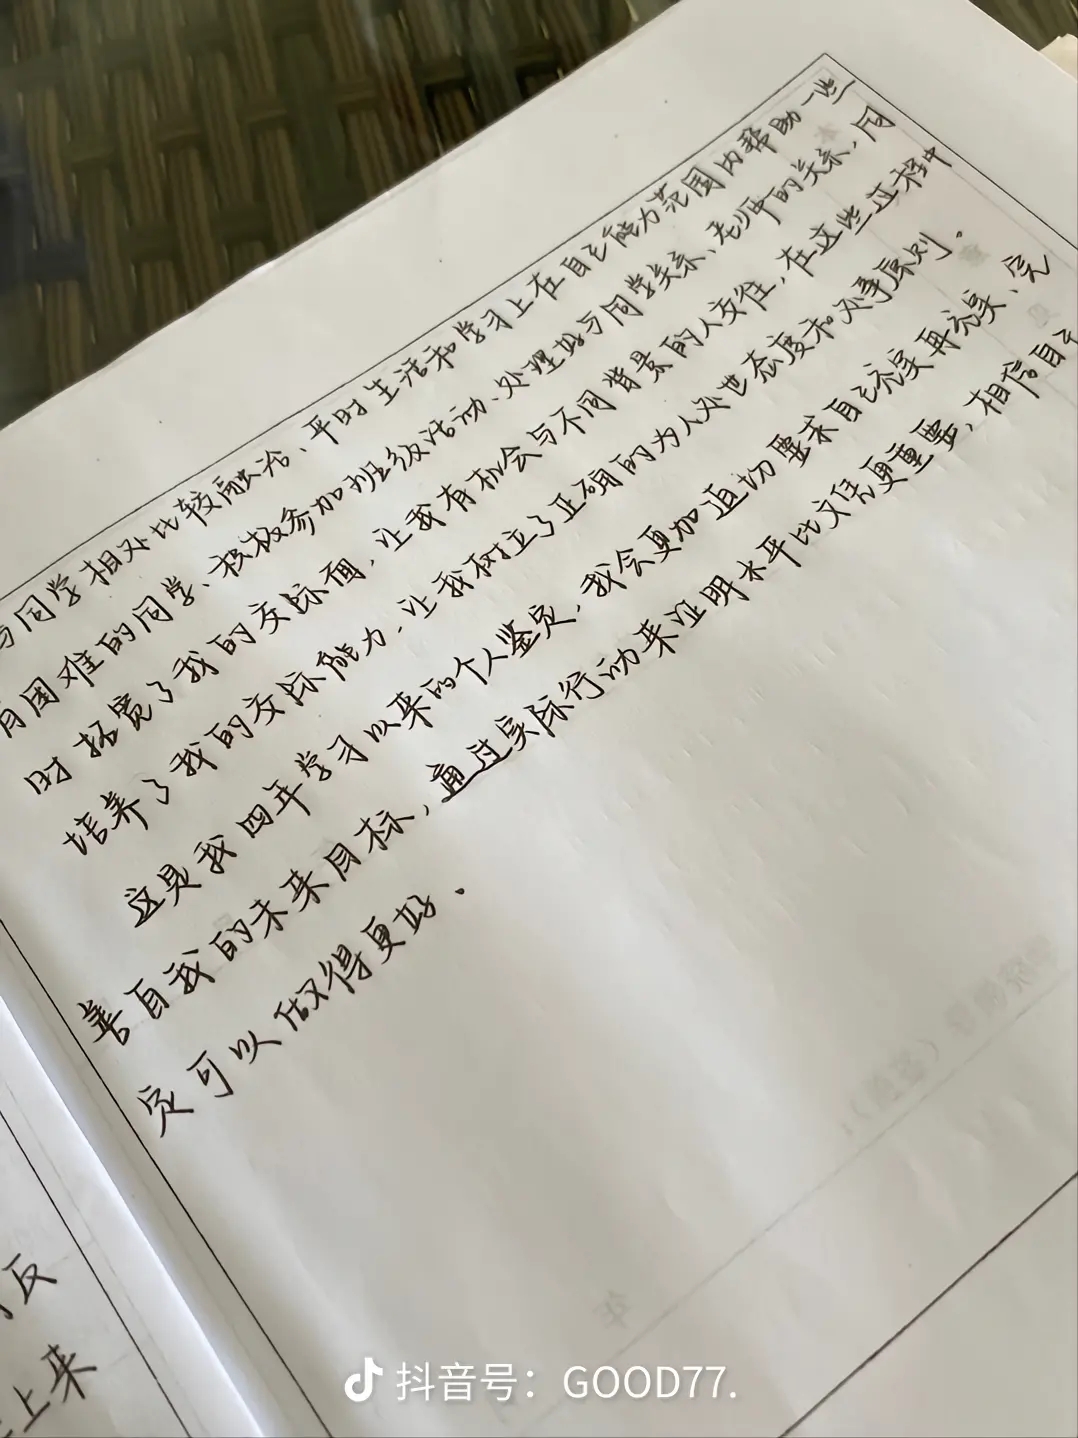 与同学相处比较融洽、平时生活和学习上在自己能力范围内帮助一些
有困难的同学、积极参加班级活动、处理好与同学关系、老师的关系,同
时拓宽了我的交际面,让我有机会与不同背景的人交往,在这些过程中
培养了我的交际能力、让我树立了正确的为人处世态度和处事原则.
这是我四年学习以来的个人鉴定,我会更加迫切要求自己充实再充实、完
善自我的未来目标,通过实际行动来证明水平比文凭更重要,相信自己
定可以做得更好.
反
上来
年
抖音号:GOOD77.